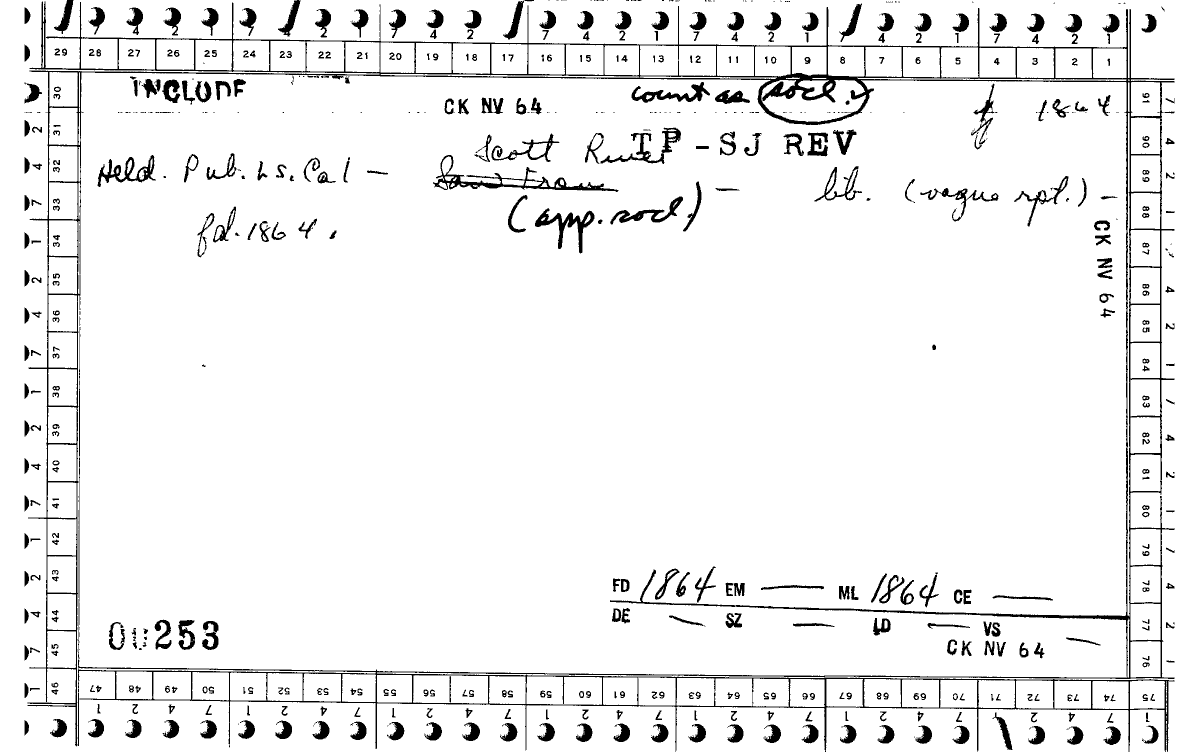 7 4 2 1 7 4 2 1 7 4 2 7 4 2 1 7 4 2 1 7 4 2 1 7 4 2 1
29 28 27 26 25 24 23 22 21 20 19 18 17 16 15 14 13 12 11 10 9 8 7 6 5 4 3 2 1
INCLUDE
CK NV 64
count as socl. ✓
1864
TP - SJ REV
Held. Pub. Ls. Cal — Scott River — lib. (vague rpt.) —
(app. socl.)
fd. 1864.
CK NV 64
FD 1864 EM — ML 1864 CE —
DE — SZ — LD — VS —
CK NV 64
00253
30 31 32 33 34 35 36 37 38 39 40 41 42 43 44 45 46
91 90 89 88 87 86 85 84 83 82 81 80 79 78 77 76
47 48 49 50 51 52 53 54 55 56 57 58 59 60 61 62 63 64 65 66 67 68 69 70 71 72 73 74 75
1 2 4 7 1 2 4 7 1 2 4 7 1 2 4 7 1 2 4 7 1 2 4 7 1 2 4 7 1